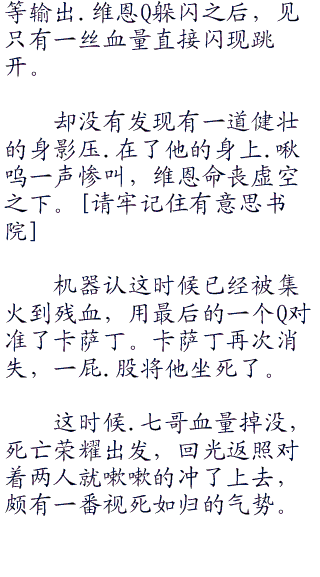 等输出.维恩Q躲闪之后，见
只有一丝血量直接闪现跳
开。
却没有发现有一道健壮
的身影压.在了他的身上.啾
呜一声惨叫，维恩命丧虚空
之下。[请牢记住有意思书
院]
机器认这时候已经被集
火到残血，用最后的一个Q对
准了卡萨丁。卡萨丁再次消
失，一屁.股将他坐死了。
这时候.七哥血量掉没，
死亡荣耀出发，回光返照对
着两人就嗽嗽的冲了上去，
颇有一番视死如归的气势。